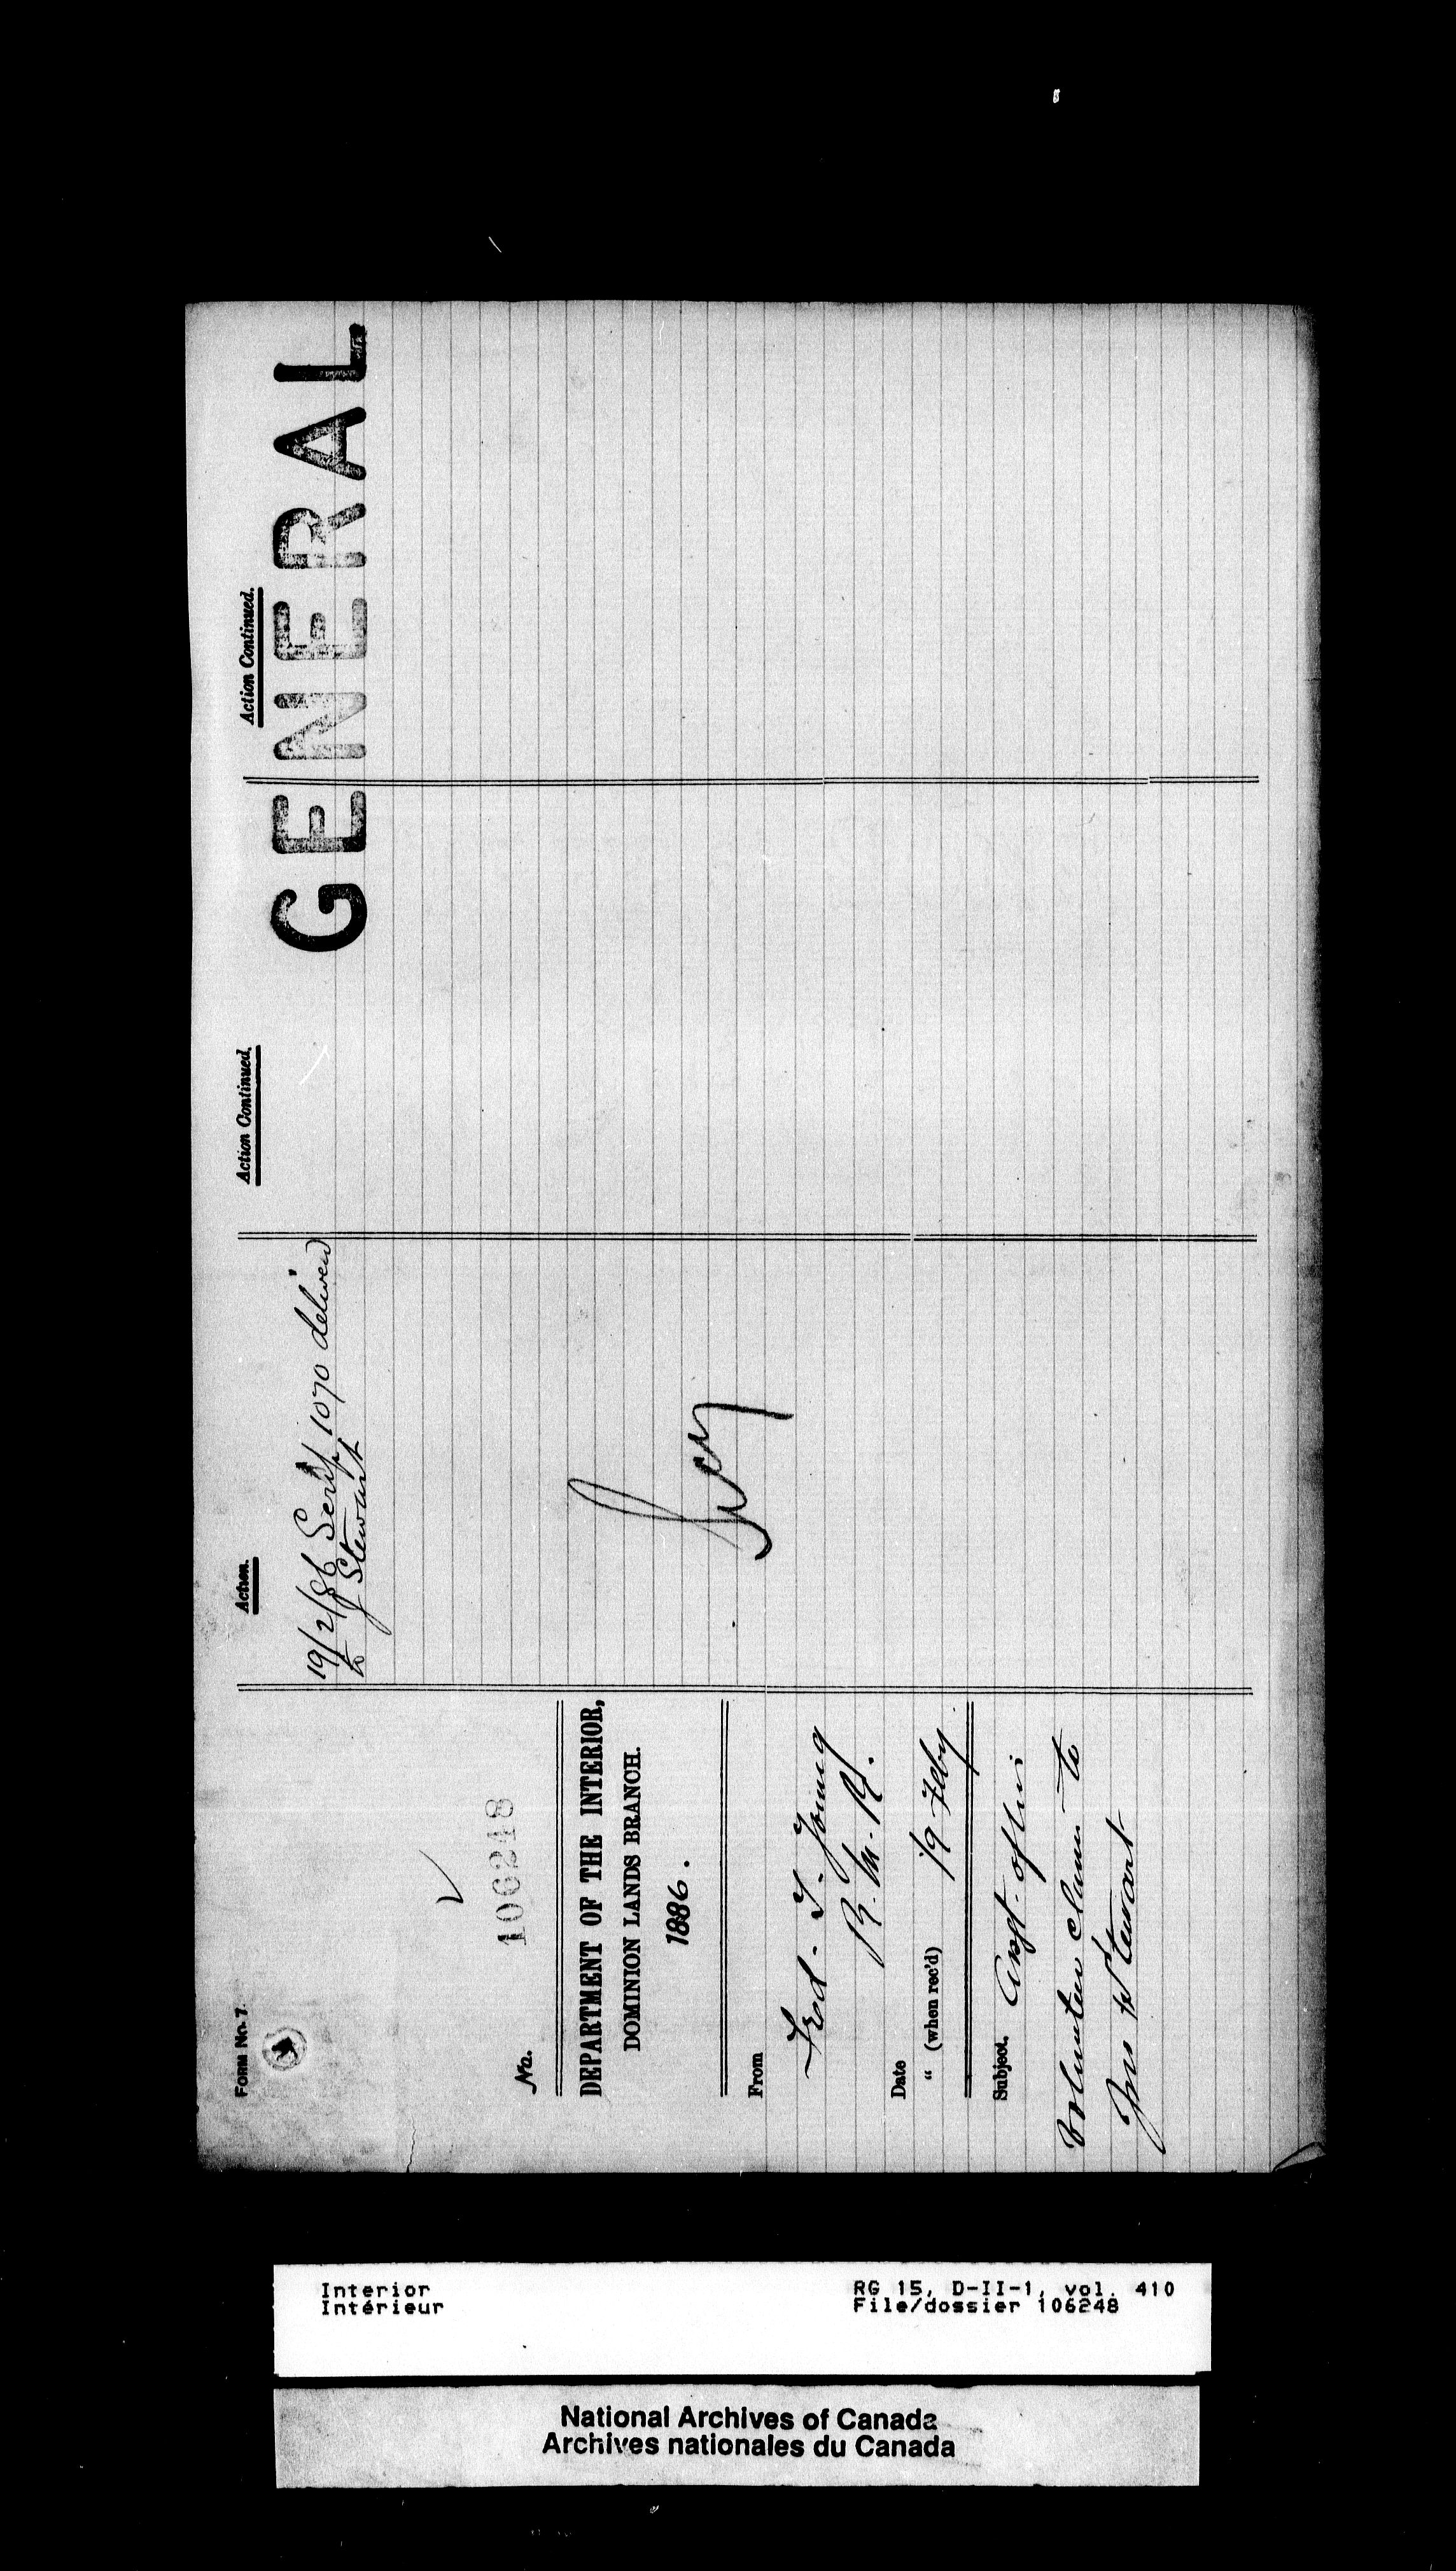 FORM No. 7.
No. 106248
DEPARTMENT OF THE INTERIOR,
DOMINION LANDS BRANCH.
1886.
From
Fred. T. Young
Date
" (when rec'd) 19 Feby.
Subject. Asgt. of his
Volunteer claim to
Jno Stewart
Action.
19/2/86 Scrip 1070 delived
to J Stewart
Action Continued.
Action Continued.
GENERAL
Interior
Intérieur
RG 15, D-II-1, vol. 410
File/dossier 106248
National Archives of Canada
Archives nationales du Canada